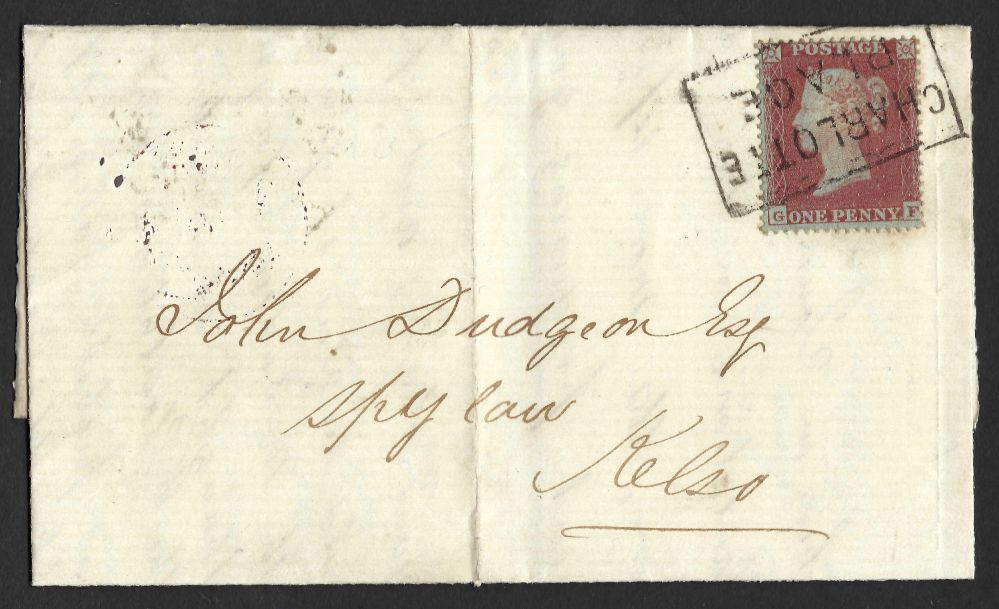 POSTAGE
CHARLOTTE
PLACE
G ONE PENNY F
John Dudgeon Esq
Spylaw
Kelso